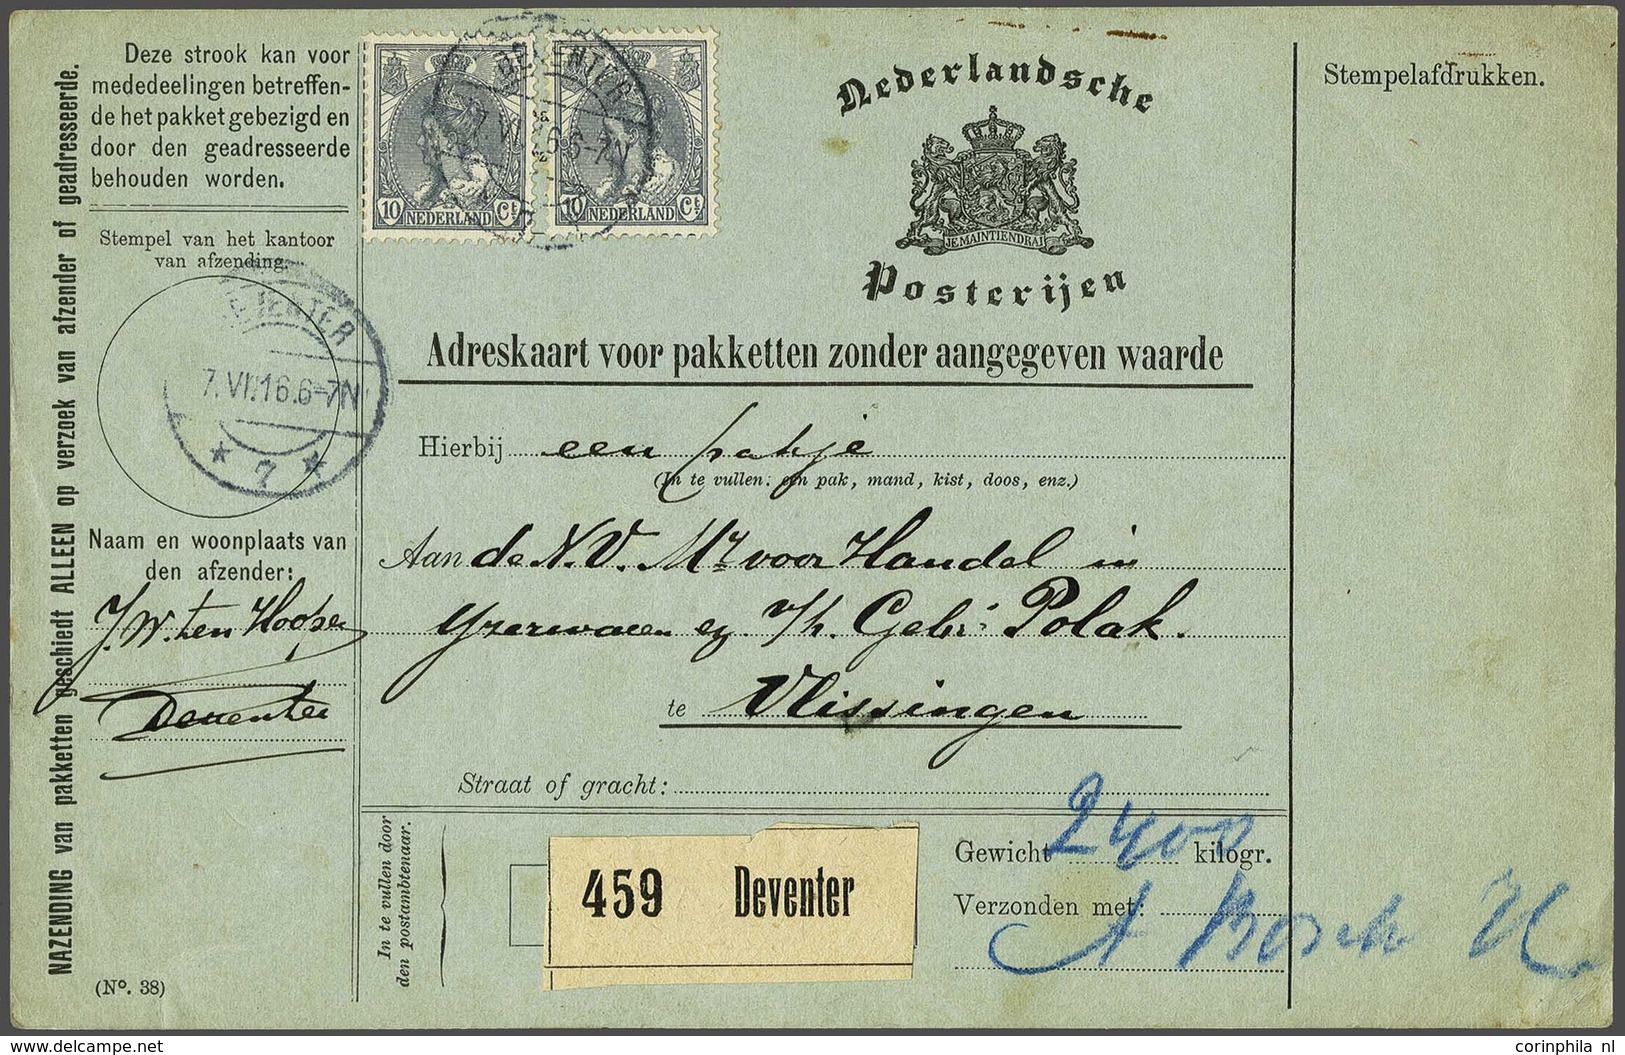 NAZENDING van pakketten geschiedt ALLEEN op verzoek van afzender of geadresseerde.
Deze strook kan voor
mededeelingen betreffen-
de het pakket gebezigd en
door den geadresseerde
behouden worden.
Stempel van het kantoor
van afzending.
DEVENTER
7.VI.16.6-7N
* 7 *
Naam en woonplaats van
den afzender:
J. W. ten
Deventer
(No. 38)
10 NEDERLAND Ct
10 NEDERLAND Ct
DEVENTER
7.VI.16 6-7N
Nederlandsche
JE MAINTIENDRAI
Posterijen
Stempelafdrukken.
Adreskaart voor pakketten zonder aangegeven waarde
Hierbij een pakje
(In te vullen: een pak, mand, kist, doos, enz.)
Aan de N.V. Mij voor Handel in
Yzerwaren Gebrs Polak.
te Vlissingen
Straat of gracht:
In te vullen door
den postambtenaar.
459 Deventer
Gewicht 2400 kilogr.
Verzonden met:
A Bosch
corinphila nl